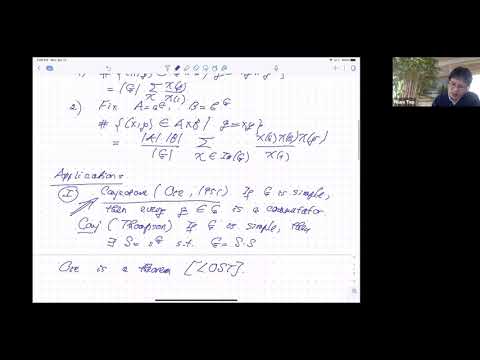 = |G| Σ χ(g)/χ(1)
χ
2) Fix A = a^G, B = b^G
# {(x,y) ∈ A×B | g = xy}
= |A| |B| / |G| Σ χ(a)χ(b)χ(g⁻¹) / χ(1)
χ ∈ Irr(G)
Applications
I) Conjecture (Ore, 1951) If G is simple,
then every g ∈ G is a commutator
Conj (Thompson) If G is simple, then
∃ S = s^G s.t. G = S.S
Ore is a theorem [LOST].
Pham Tiep